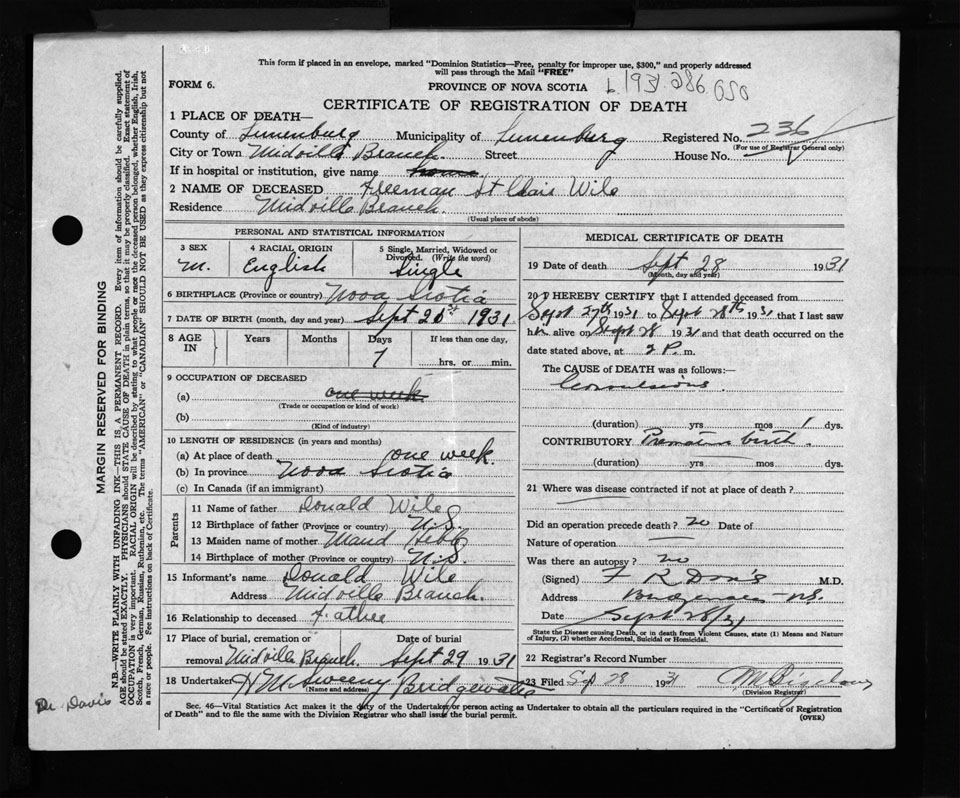 This form if placed in an envelope, marked "Dominion Statistics—Free, penalty for improper use, $300," and properly addressed
will pass through the Mail "FREE"
FORM 6.
PROVINCE OF NOVA SCOTIA
1931 286 050
CERTIFICATE OF REGISTRATION OF DEATH
1 PLACE OF DEATH—
County of Lunenburg Municipality of Lunenburg Registered No. 236
(For use of Registrar General only)
City or Town Midville Branch Street House No.
If in hospital or institution, give name home
2 NAME OF DECEASED Freeman St Clair Wile
Residence Midville Branch.
(Usual place of abode)
PERSONAL AND STATISTICAL INFORMATION
3 SEX
M.
4 RACIAL ORIGIN
English
5 Single, Married, Widowed or
Divorced. (Write the word)
Single
6 BIRTHPLACE (Province or country) Nova Scotia
7 DATE OF BIRTH (month, day and year) Sept 21st 1931
8 AGE IN
Years Months Days If less than one day,
7 hrs. or min.
9 OCCUPATION OF DECEASED
(a) one week
(Trade or occupation or kind of work)
(b)
(Kind of industry)
10 LENGTH OF RESIDENCE (in years and months)
(a) At place of death one week.
(b) In province Nova Scotia
(c) In Canada (if an immigrant)
Parents
11 Name of father Donald Wile
12 Birthplace of father (Province or country) N.S.
13 Maiden name of mother Maud
14 Birthplace of mother (Province or country) N.S.
15 Informant's name Donald Wile
Address Midville Branch.
16 Relationship to deceased Father
17 Place of burial, cremation or Date of burial
removal Midville Branch. Sept 29 1931
18 Undertaker H M Sweeny Bridgewater
(Name and address)
MEDICAL CERTIFICATE OF DEATH
19 Date of death Sept 28 1931
(Month, day and year)
20 I HEREBY CERTIFY that I attended deceased from
Sept 27th 1931 to Sept 28th 1931 that I last saw
him alive on Sept 28 1931 and that death occurred on
date stated above, at 2 P. m.
The CAUSE of DEATH was as follows:—
Convulsions.
(duration) yrs mos 1 dys.
CONTRIBUTORY Premature birth.
(duration) yrs mos dys.
21 Where was disease contracted if not at place of death?
Did an operation precede death? no Date of
Nature of operation
Was there an autopsy? no
(Signed) F R Davis M.D.
Address Bridgewater N.S.
Date Sept 28/31
State the Disease causing Death, or in death from Violent Causes, state (1) Means and Nature
of Injury, (2) whether Accidental, Suicidal or Homicidal.
22 Registrar's Record Number
23 Filed Sep 28 1931
(Division Registrar)
Sec. 46—Vital Statistics Act makes it the duty of the Undertaker or person acting as Undertaker to obtain all the particulars required in the "Certificate of Registration
of Death" and to file the same with the Division Registrar who shall issue the burial permit. (OVER)
MARGIN RESERVED FOR BINDING
N.B.—WRITE PLAINLY WITH UNFADING INK—THIS IS A PERMANENT RECORD. Every item of information should be carefully supplied.
AGE should be stated EXACTLY. PHYSICIANS should STATE CAUSE OF DEATH in plain terms, so that it may be properly classified. Exact statement of
OCCUPATION is very important. RACIAL ORIGIN will be described by stating to what people or race the deceased person belonged, whether English, Irish,
Scotch, French, German, Russian, Ruthenian, etc. The terms "AMERICAN" or "CANADIAN" SHOULD NOT BE USED as they express citizenship but not
a race or people. See instructions on back of Certificate.
Dr. Davis